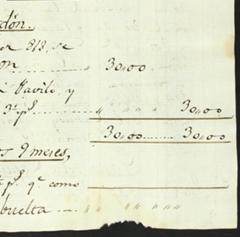 dón.
or 313, se
on ........ 30,,00
l Pavilo, y
3,, p.s ........ " " " 30,,00
30,,00 ........ 30,,00
os 9 meses,
p.s q.e como
buelta .... " " " " "